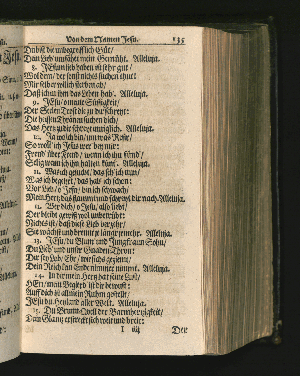 Von dem Namen Jesu. 135
Du bist die unbegreifflich Güt/
Dein Lieb umfähet mein Gemüht. Alleluja.
8. JEsum lieb haben ist sehr gut/
Wol dem/ der sonst nichts suchen thut!
Mir selber will ich sterben ab/
Daß ich in ihm das Leben hab. Alleluja.
9. JEsu/ o meine Süssigkeit/
Der Seelen Trost die zu dir schreyet:
Die heissen Thränen suchen dich/
Das Hertz zu dir schreyet inniglich. Alleluja.
10. Ja wo ich bin/ um was Revier/
So wolt ich Jesus wer bey mir:
Freud über Freud/ wenn ich ihn find/
Selig wann ich ihn halten könt. Alleluja.
11. Was ich gesucht/ das seh ich nun/
Was ich begehrt/ das hab ich schon:
Vor Lieb/ o Jesu/ bin ich schwach/
Mein Hertz das flammt und schreyt dir nach. Alleluja.
12. Wer dich/ o Jesu/ also liebt/
Der bleibt gewiß wol unbetrübt:
Nichts ist/ daß diese Lieb verzehr/
Sie wächst und brennt je länger je mehr. Alleluja.
13. JEsu/ du Blum und Jungfraun Sohn/
Du Lieb und unser Gnaden-Thron:
Dir sey Lob/ Ehr/ wie sichs geziemt/
Dein Reich kein Ende nimmer nimmt. Alleluja.
14. In dir mein Hertz hat seine Lust/
HErr/ mein Begierd ist dir bewust:
Auf dich ist all mein Ruhm gestellt/
JEsu du Heyland aller Welt. Alleluja.
15. Du Brunn-Quell der Barmhertzigkeit/
Dein Glantz erstreckt sich weit und breit:
Der